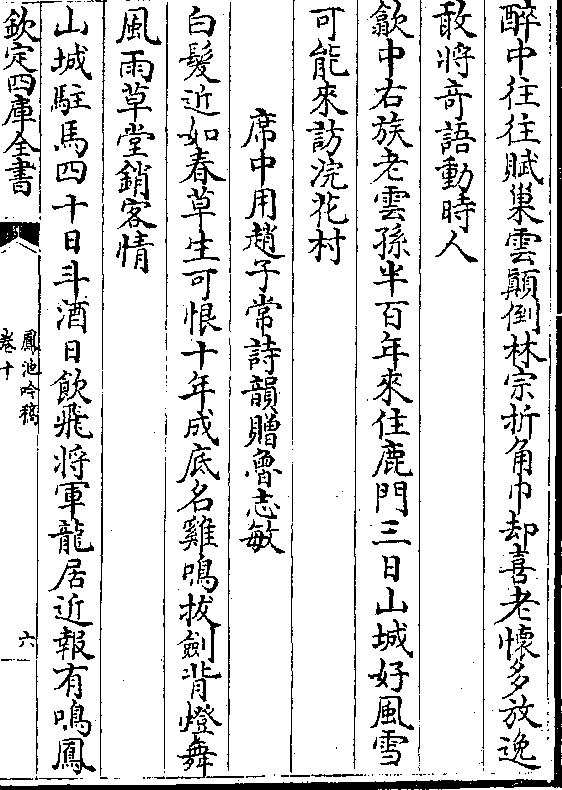 醉中往往賦巢雲顛倒林宗折角巾却喜老懷多放逸
敢將奇語動時人
歙中右族老雲孫半百年來住鹿門三日山城好風雪
可能來訪浣花村
席中用趙子常詩韻贈魯志敏
白髮近如春草生可恨十年成底名雞鳴拔劍背燈舞
風雨草堂銷客情
山城駐馬四十日斗酒日飲飛將軍龍居近報有鳴鳳
欽定四庫全書
鳳池吟稿
卷十
六